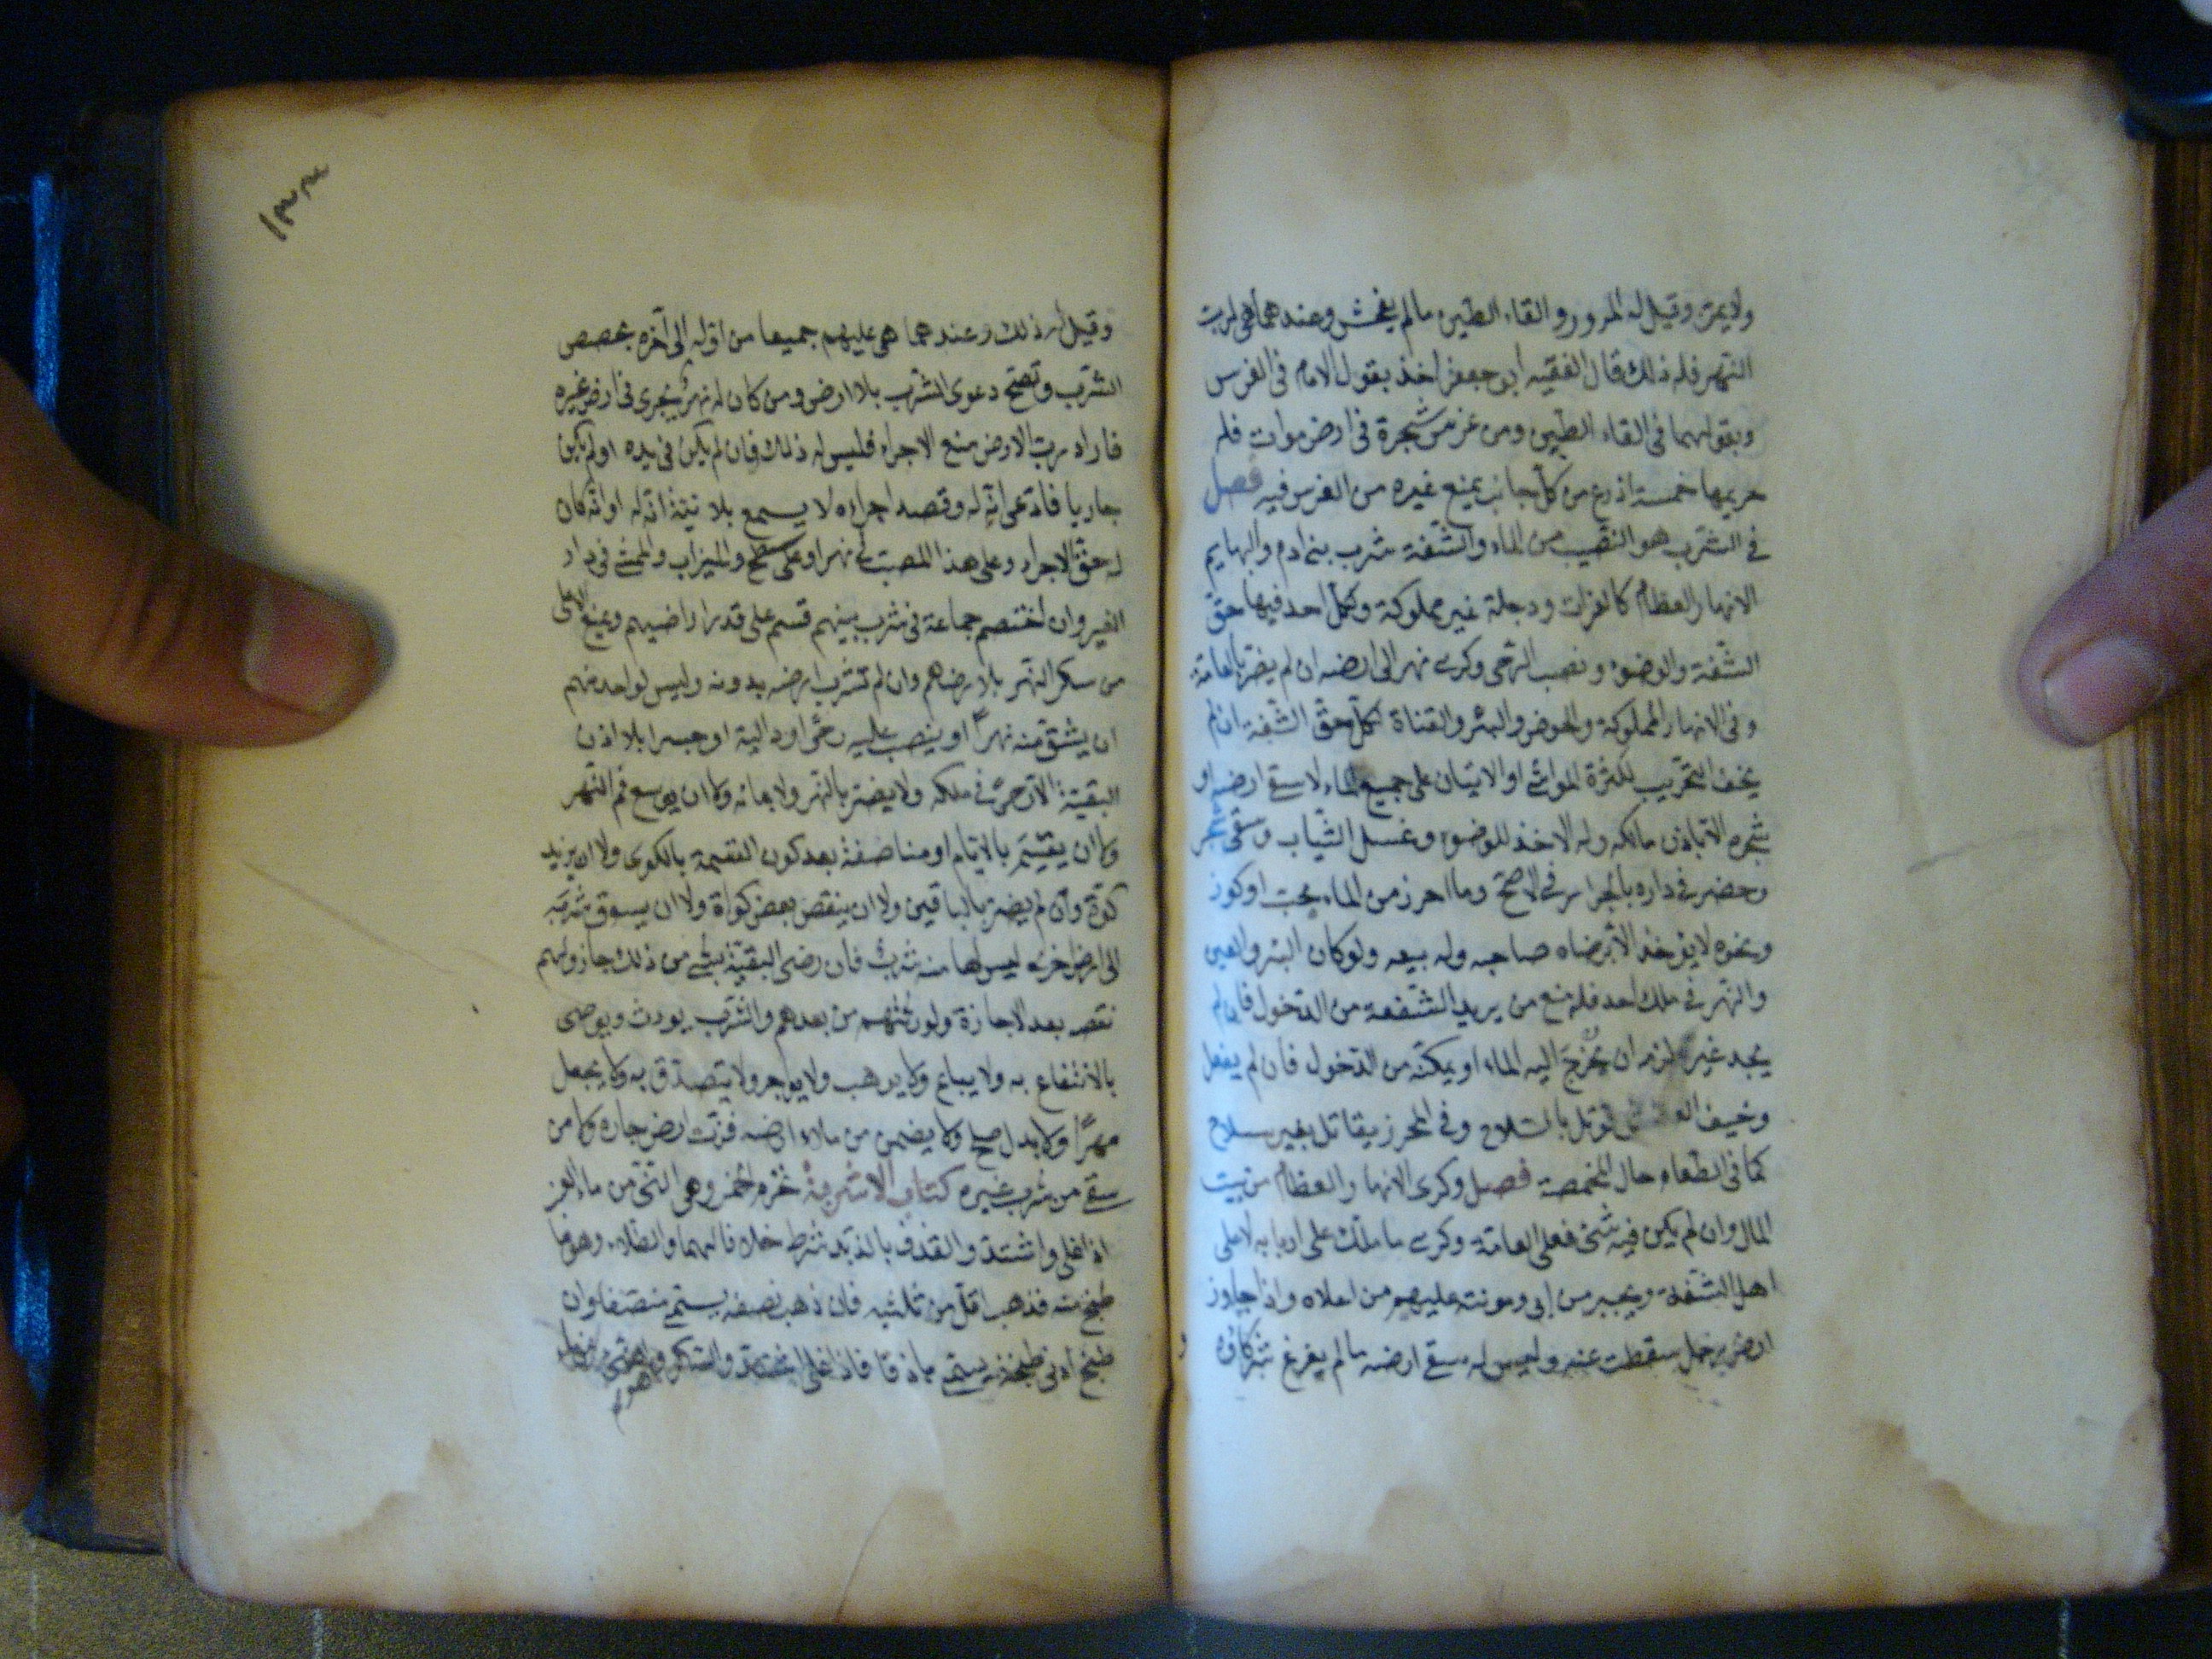 ولا يمر وقيل له المرور والقاء الطين ما لم يفحش وعندهما هي لرب
النهر فله ذلك قال الفقيه ابو جعفر اخذ بقول الامام في الغرس
وبقولهما في القاء الطين ومن غرس شجرة في ارض موات فله
حريمها خمسة اذرع من كل جانب يمنع غيره من الغرس فيه فصل
في الشرب هو النصيب من الماء والشفة شرب بني ادم والبهايم
الانهار العظام كالفرات ودجلة غير مملوكة ولكل احد فيها حق
الشفة والوضوء ونصب الرحى وكرى نهر الى ارضه ان لم يضر بالعامة
وفى الانهار المملوكة والحوض والبئر والقناة لكل حق الشفة ان لم
يخف التخريب لكثرة المواشي او الاتيان على جميع الماء لا سقي ارضه او
شجره الا باذن مالكه وله الاخذ للوضوء وغسل الثياب وسقي شجر
وخضر في داره بالجرار في الاصح وما احرز من الماء بحب او كوز
ونحوه لا يؤخذ الا برضاء صاحبه وله بيعه ولو كان البئر والعين
والنهر في ملك احد فله منع من يريد الشفعة من الدخول فان لم
يجد غيره لزمه ان يخرج اليه الماء او يمكنه من الدخول فان لم يفعل
وخيف العطش قوتل بالسلاح وفي المحرز يقاتل بغير سلاح
كما في الطعام حال المخمصة فصل وكرى الانهار العظام من بيت
المال وان لم يكن فيه شئ فعلى العامة وكرى ما ملك على اربابه لا على
اهل الشفة ويجبر من ابى ومونته عليهم من اعلاه واذا جاوز
ارض رجل سقطت عنه وليس له سقي ارضه ما لم يفرغ شركاؤه
١٣٣
وقيل له ذلك وعندهما هي عليهم جميعا من اوله الى آخره بحصص
الشرب وتصح دعوى الشرب بلا ارض ومن كان له نهر يجرى في ارض غيره
فاراد رب الارض منع الاجراء فليس له ذلك فان لم يكن في يده او لم يكن
جاريا فادعى انه له وقصد اجراءه لا يسمع بلا بينة انه له او انه كان
له حق الاجراء وعلى هذا المصب في نهر او على سطح والميزاب والممشى في دار
الغير وان اختصم جماعة في شرب بينهم قسم على قدر اراضيهم ويمنع الاعلى
من سكر النهر بلا رضاهم وان لم تشرب ارضه بدونه وليس لواحد منهم
ان يشق منه نهرا او ينصب عليه رحى او دالية او جسرا بلا اذن
البقية الا رحى في ملكه ولا يضر بالنهر ولا بمائه ولا ان يوسع فم النهر
ولا ان يقسم بالايام او مناصفة بعد كون القسمة بالكوى ولا ان يزيد
كوة وان لم يضر بالباقين ولا ان ينقص بعض كواه ولا ان يسوق شربه
الى ارض اخرى ليس لها منه شرب فان رضى البقية بشئ من ذلك جاز ولهم
نقضه بعد الاجازة ولورثتهم من بعدهم والشرب يورث ويوصى
بالانتفاع به ولا يباع ولا يوهب ولا يواجر ولا يتصدق به ولا يجعل
مهرا ولا بدل صلح ولا يضمن من ملاء ارضه فنزت ارض جاره ولا من
سقي من شرب غيره كتاب الاشربة تحرم الخمر وهي الني من ماء العنب
اذا غلى واشتد والقذف بالزبد شرط خلافا لهما والطلاء وهو ما
طبخ منه فذهب اقل من ثلثيه فان ذهب نصفه يسمى منصفا وان
طبخ ادنى طبخة يسمى باذقا فاذا غلى اشتد والسكر